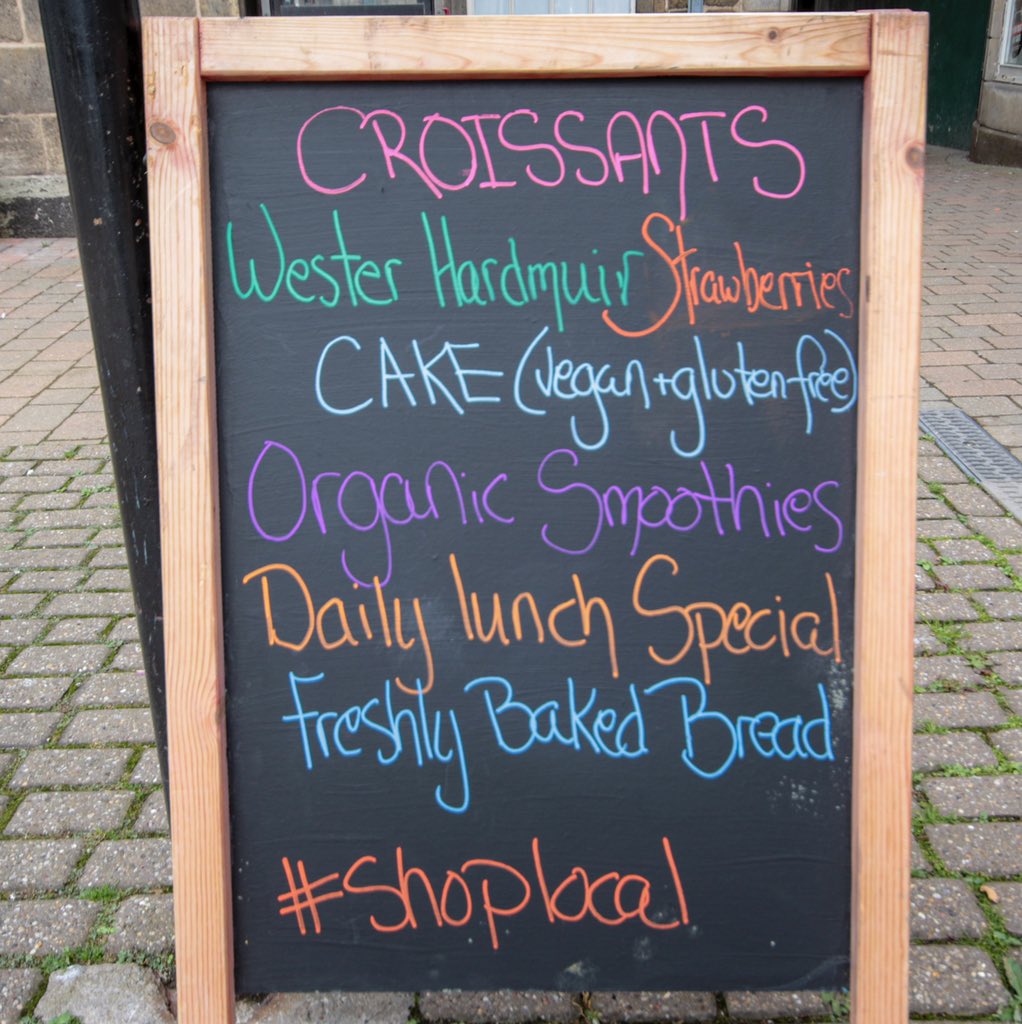 CROISSANTS
Wester Hardmuir Strawberries
CAKE (vegan+gluten free)
Organic Smoothies
Daily lunch Special
Freshly Baked Bread
#shoplocal